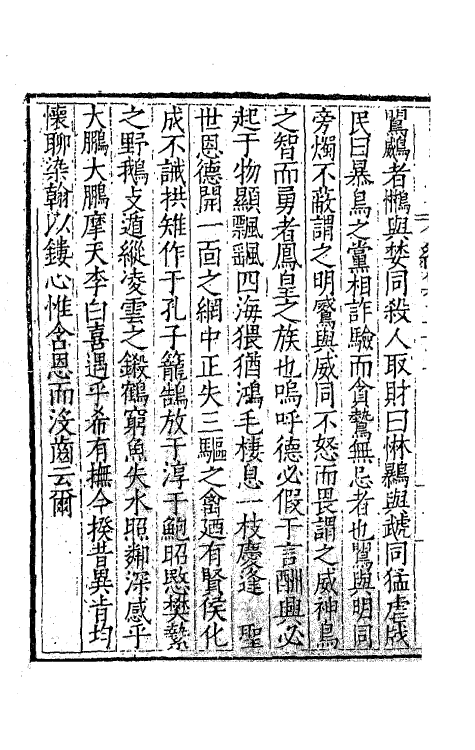 鸎䴏者鷅與婪同殺人取財曰惏鷝與虣同猛虐戕
民曰暴鳥之黨相詐驗而貪鷙無忌者也鷪與明同
旁燭不蔽謂之明鸑與威同不怒而畏謂之威神鳥
之智而勇者鳳皇之族也嗚呼德必假于言酬興必
起于物顯飄颻四海猥猶鴻毛棲息一枝慶逢 聖
世恩德開一面之網中正失三驅之禽廼有賢侯化
成不諴拱雉作于孔子籠鵠放于淳于鮑昭愍樊縶
之野鵝攴遁縱凌雲之鎩鶴窮魚失水照鄰深感乎
大鵬大鵬摩天李白喜遇乎希有撫今揆昔異肯均
懷聊染翰以鏤心惟含恩而沒齒云爾